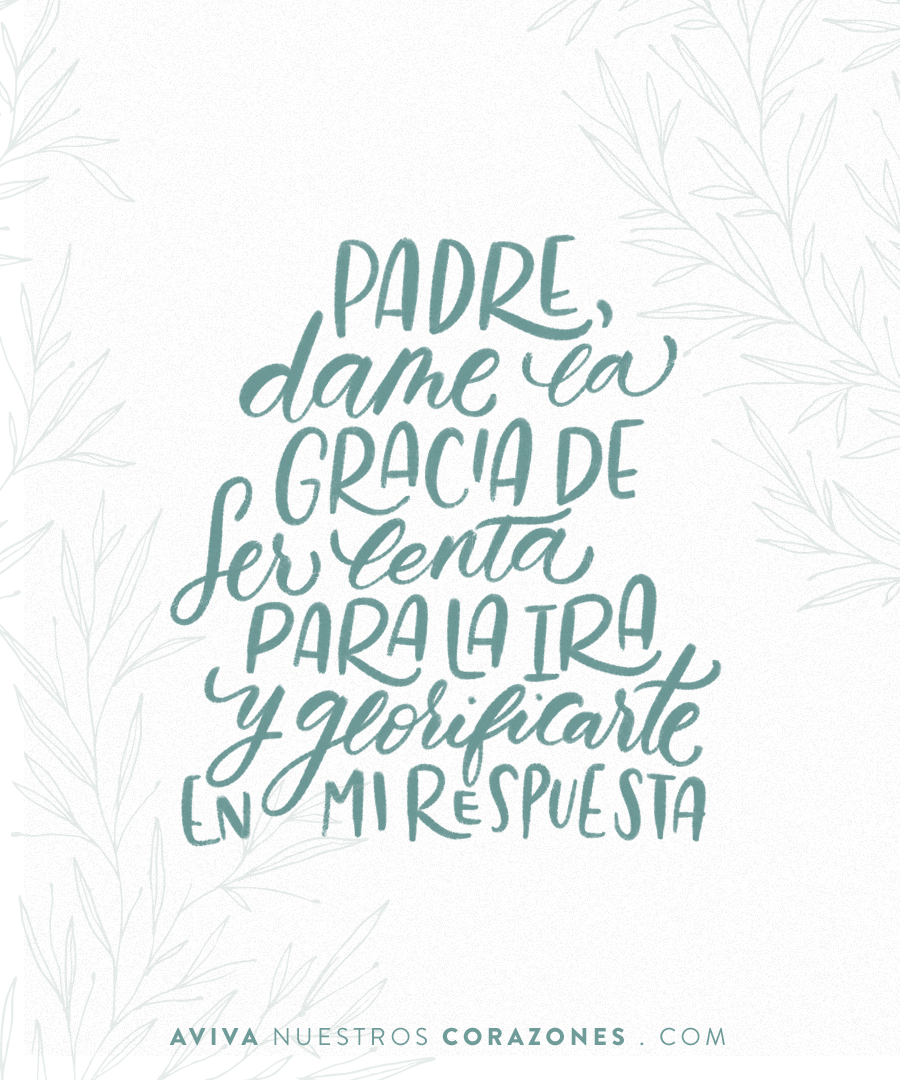 PADRE,
dame la
GRACIA DE
Ser lenta
PARA LA IRA
y glorificarte
EN MI RESPUESTA
AVIVA NUESTROS CORAZONES . COM